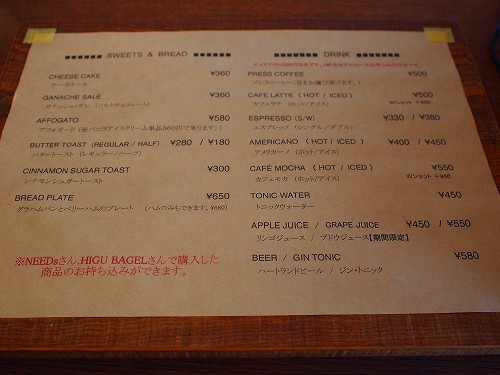 SWEETS & BREAD
CHEESE CAKE ¥360
チーズケーキ
GANACHE SALÉ ¥360
ガナッシュ・サレ (ソルトチョコレート)
AFFOGATO ¥580
アフォガード (※バニラアイスクリーム単品360円で承ります。)
BUTTER TOAST (REGULAR / HALF) ¥280 / ¥180
バタートースト (レギュラー/ハーフ)
CINNAMON SUGAR TOAST ¥300
シナモンシュガートースト
BREAD PLATE ¥650
グラハムパンとベリーハムのプレート (ハムのみもできます。¥680)
※NEEDsさん,HIGU BAGELさんで購入した
商品のお持ち込みができます。
DRINK
PRESS COFFEE ¥500
プレスコーヒー (豆をお選び頂けます。)
CAFE LATTE ( HOT / ICED ) ¥500
カフェラテ (ホット/アイス) Wショット +¥50
ESPRESSO (S/W) ¥330 / ¥380
エスプレッソ (シングル/ダブル)
AMERICANO ( HOT / ICED ) ¥400 / ¥450
アメリカーノ (ホット/アイス)
CAFÉ MOCHA ( HOT / ICED ) ¥550
カフェモカ (ホット/アイス) Wショット +¥50
TONIC WATER ¥450
トニックウォーター
APPLE JUICE / GRAPE JUICE ¥450 / ¥550
リンゴジュース / ブドウジュース【期間限定】
BEER / GIN TONIC ¥580
ハートランドビール / ジン・トニック